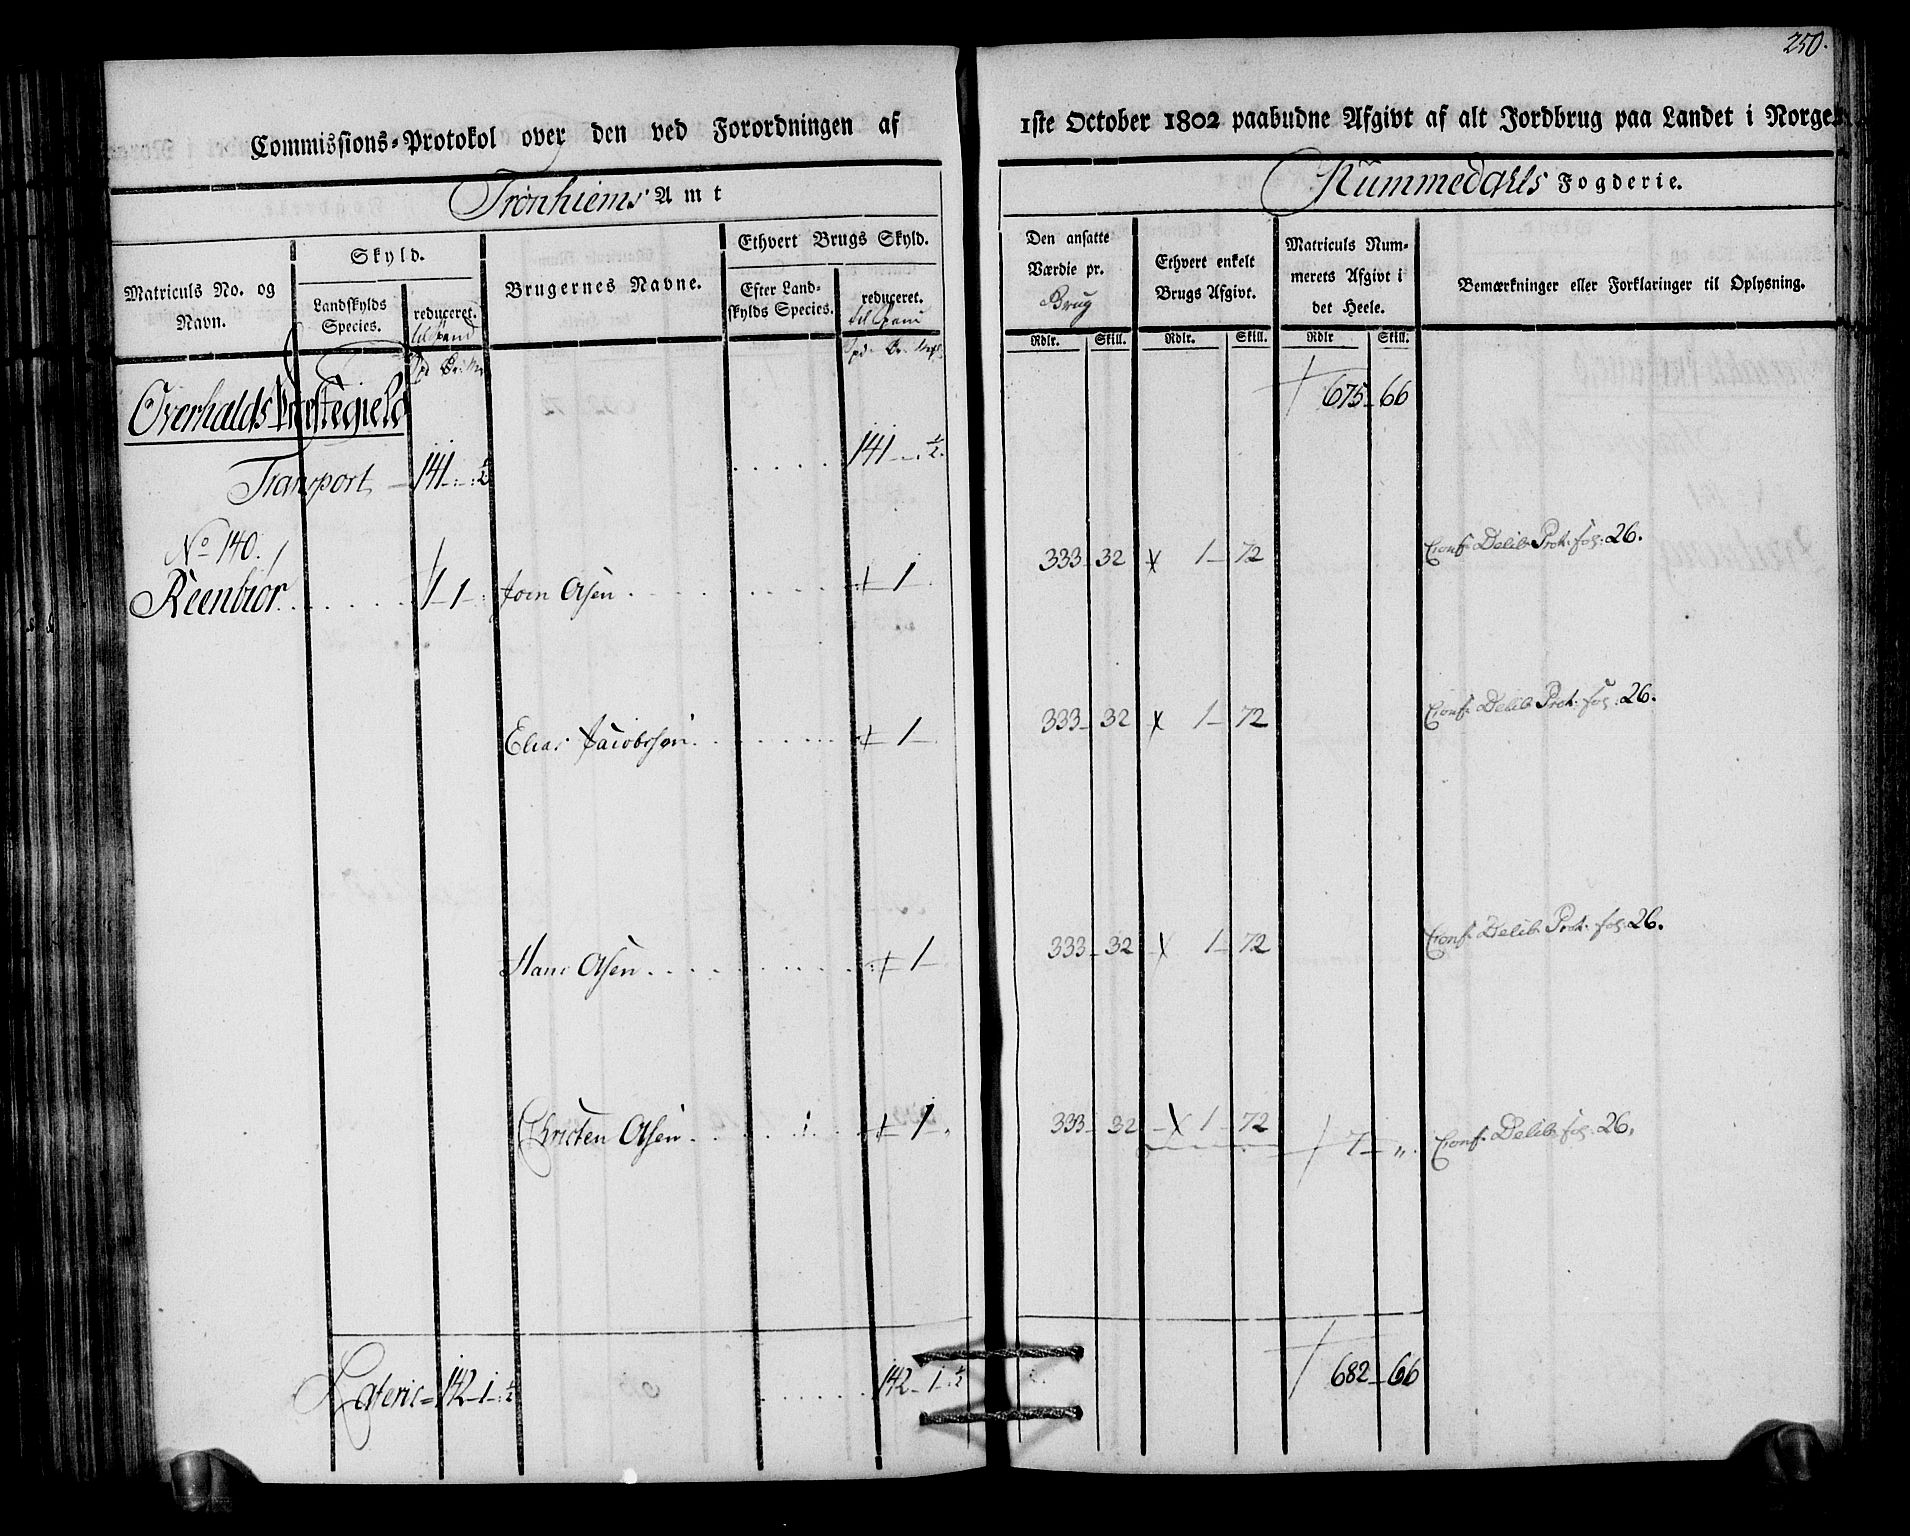 250.
Commissions-Protokol over den ved Forordningen af 1ste October 1802 paabudne Afgivt af alt Jordbrug paa Landet i Norge
Tronhiems Amt
Nummedahls Fogderie.
Matriculs No. og Navn.
Skyld.
Landskylds Species.
reduceret. til Spand
Brugernes Navne.
Ethvert Brugs Skyld.
Efter Landskylds Species.
reduceret. til Spand
Den ansatte Værdie pr. Brug
Ethvert enkelt Brugs Afgivt.
Matriculs Nummerets Afgivt i det Heele.
Bemærkninger eller Forklaringer til Oplysning.
Rdlr. Skill. Rdlr. Skill. Rdlr Skill.
Overhalds Præstegield 675 - 66
Transport - 141 - : ½ . . . . . 141 - ½.
No 140.
Reenbiør . . . . . . 1 - 1 - : Joen Olsen . . . . . . . . . . + 1 - 333 - 32 x 1 - 72 Conf. Delib. Prot. fol: 26.
Elias Jacobssen . . . . . . . . + 1 - 333 - 32 x 1 - 72 Conf. Delib. Prot. fol: 26.
Hans Olsen . . . . . . . . . + 1 - 333 - 32 x 1 - 72 Conf. Delib. Prot. fol: 26.
Christen Olsen . . . . . . . . + 1 - 333 - 32 x 1 - 72 7 - „. Conf. Delib. fol: 26.
Lateris = 142 - 1 - : ½ . . . . . . 142 - 1 - ½ 682 - 66